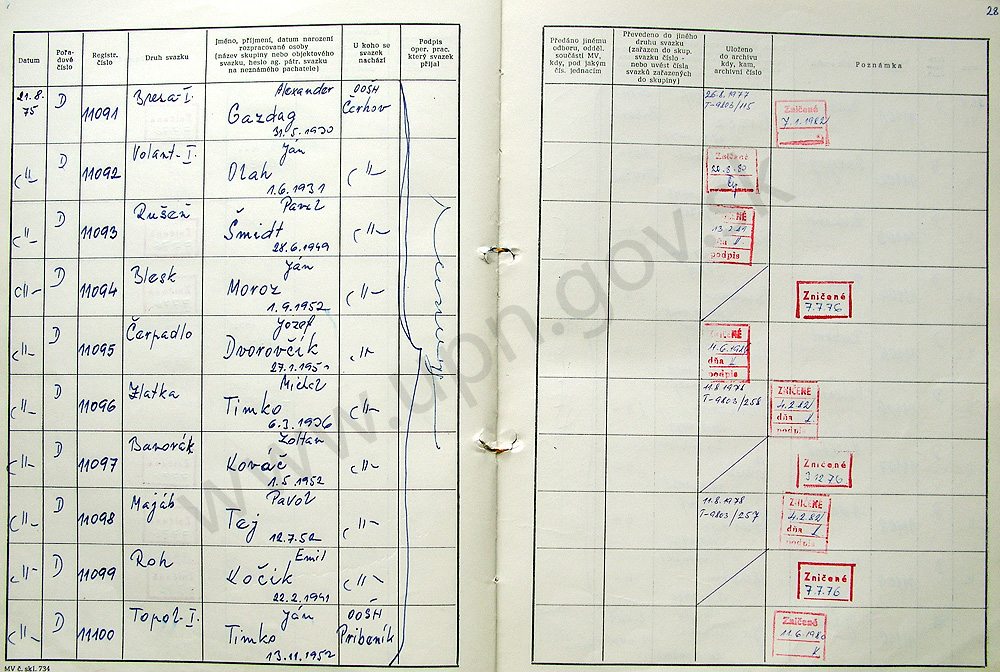 28
Datum
Pořa-
dové
číslo
Registr.
číslo
Druh svazku
Jméno, příjmení, datum narození
rozpracované osoby
(název skupiny nebo objektového
svazku, heslo ag. pátr. svazku
na neznámého pachatele)
U koho se
svazek
nachází
Podpis
oper. prac.
který svazek
přijal
Předáno jinému
odboru, odděl.
součásti MV,
kdy, pod jakým
čís. jednacím
Převedeno do jiného
druhu svazku
(zařazen do skup.
svazku číslo -
nebo uvést čísla
svazků zařazených
do skupiny)
Uloženo
do archívu
kdy, kam,
archivní číslo
Poznámka
21.8.
75
D
11091
Breza-I.
Alexander
Gazdag
31.5.1930
OOSH
Čerhov
26.8.1977
T-9803/115
Zničené
7.1.1982
D
11092
Volant-I.
Ján
Olah
1.6.1931
Zničené
D
11093
Rušeň
Pavel
Šmidt
28.6.1949
podpis
D
11094
Blesk
Ján
Moroz
1.9.1952
Zničené
7.7.76
D
11095
Čerpadlo
Jozef
Dvorovčík
dňa
podpis
D
11096
Zlatka
Timko
6.3.1936
11.8.1978
T-9803/258
ZNIČENÉ
4.2.82
dňa
podpis
D
11097
Zoltan
Kováč
1.5.1952
Zničené
3.12.76
D
11098
Majáb
Pavol
Tej
12.7.52
11.8.1978
T-9803/257
ZNIČENÉ
4.2.82
dňa
podpis
D
11099
Roh
Emil
Kočik
22.2.1941
Zničené
7.7.76
D
11100
Topol-I.
Ján
Timko
13.11.1952
OOSH
Pribeník
Zničené
11.6.1980
MV č. skl. 734
www.upn.gov.sk